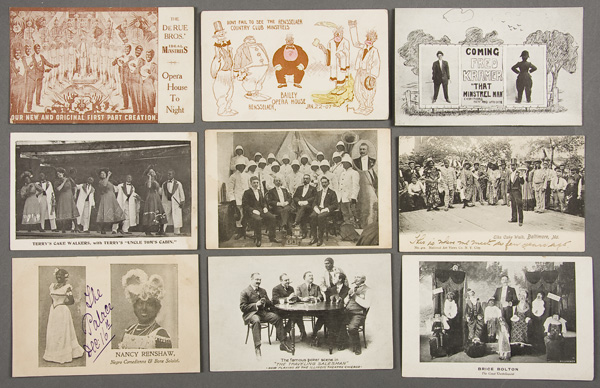 THE
DE RUE
BROS.'
IDEAL
MINSTRELS
Opera
House
To
Night
OUR NEW AND ORIGINAL FIRST PART CREATION.
DONT FAIL TO SEE THE RENSSELAER
COUNTRY CLUB MINSTRELS
BAILEY
OPERA HOUSE
RENSSELAER,
COMING
FRED
KRAMER
"THAT
MINSTREL MAN
TERRY'S CAKE WALKERS, with TERRY'S "UNCLE TOM'S CABIN."
Cake Walk, Baltimore, Md.
The Palace
Dec 10th
NANCY RENSHAW,
Negro Comedienne & Bone Soloist.
The famous poker scene in
"THE TRAVELING SALESMAN"
NOW PLAYING AT THE ILLINOIS THEATRE CHICAGO
BRICE BOLTON
The Great Ventriloquist